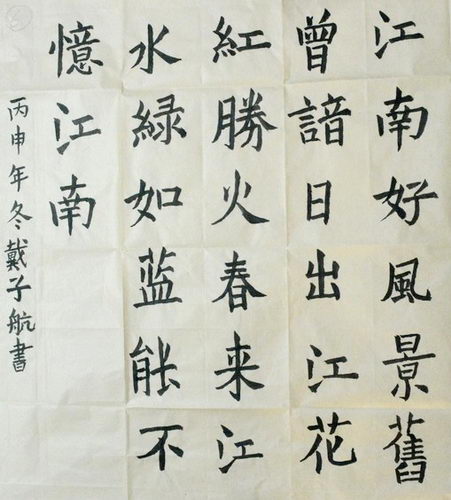 江南好風景舊
曾諳日出江花
紅勝火春来江
水緑如蓝能不
憶江南
丙申年冬戴子航書